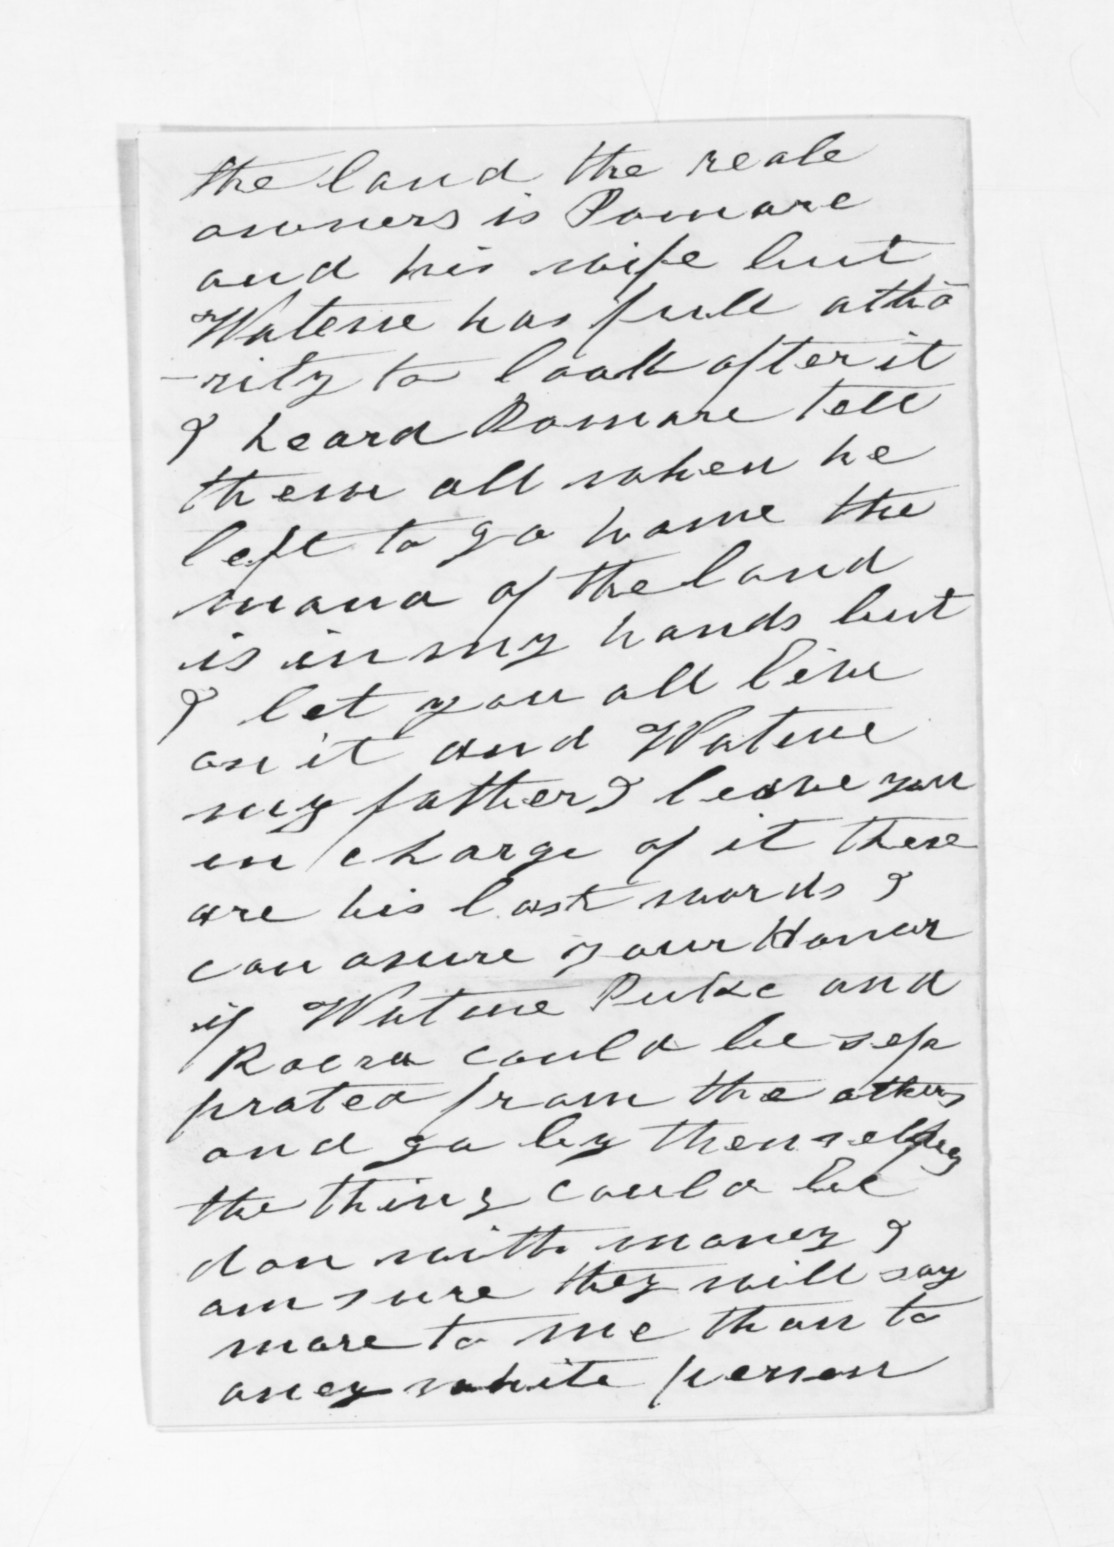 the land the reale
owners is Pomare
and his wife but
Watene has full atho
-rity to look after it
I heard Pomare tell
them all when he
left to go home the
mana of the land
is in my hands but
I let you all live
on it and Watene
my father I leave you
in charge of it these
are his last words I
can asure your Honor
if Watene Puke and
could be sep
prated from the others
and go by themselves
the thing could be
don with money I
am sure they will say
more to me than to
aney white person